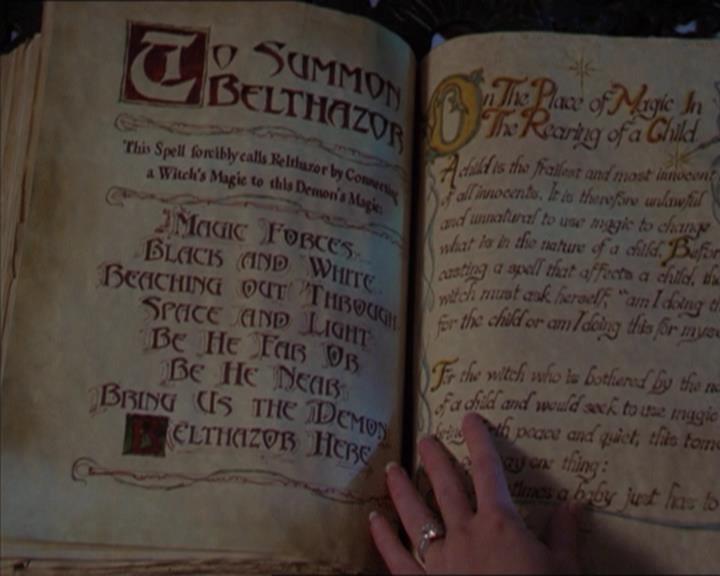 To Summon
Belthazor
This Spell forcibly calls Belthazor by Connecting
a Witch's Magic to this Demon's Magic:
Magic Forces
Black and White
Reaching out Through
Space and Light
Be He Far Or
Be He Near
Bring Us the Demon
Belthazor Here
On The Place of Magic In
The Rearing of a Child
A child is the frailest and most innocent
of all innocents. It is therefore unlawful
and unnatural to use magic to change
what is in the nature of a child. Befor
casting a spell that affects a child, the
witch must ask herself, "am I doing th
for the child or am I doing this for myse
For the witch who is bothered by the
of a child and would seek to use magic
peace and quiet, this tome
any one thing:
a baby just has to